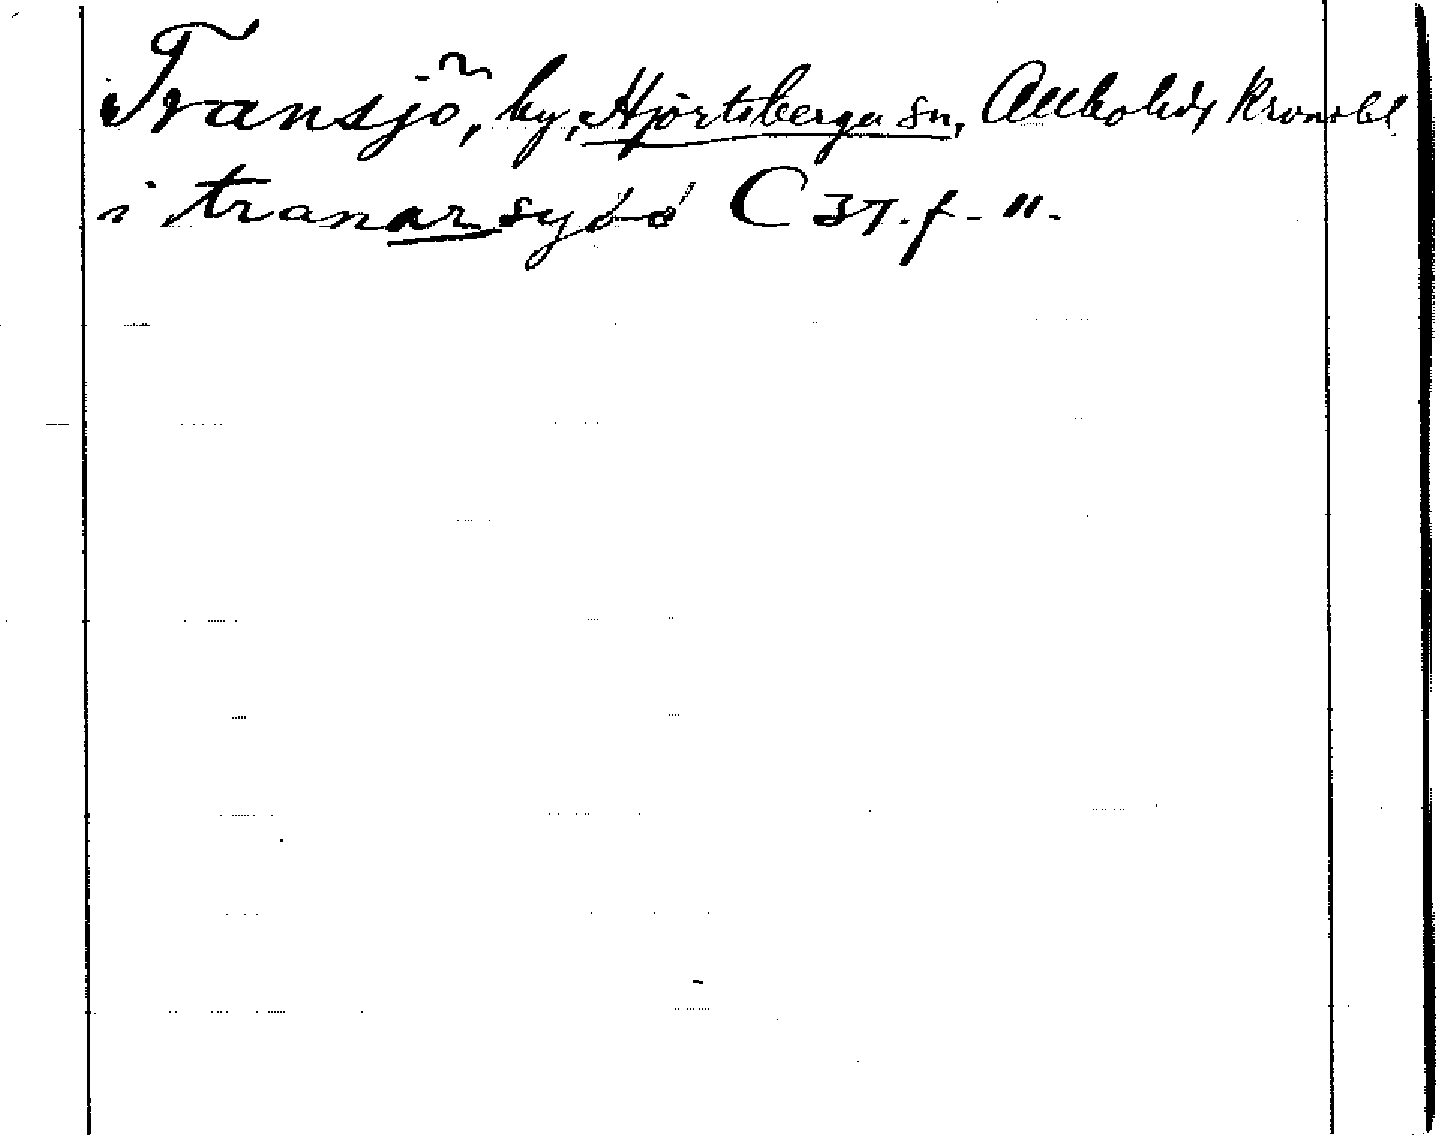 Transjö, by, Hjortsberga sn, Allbo hd, Kronobl
i tranarsyó ó C 37. f. 11.